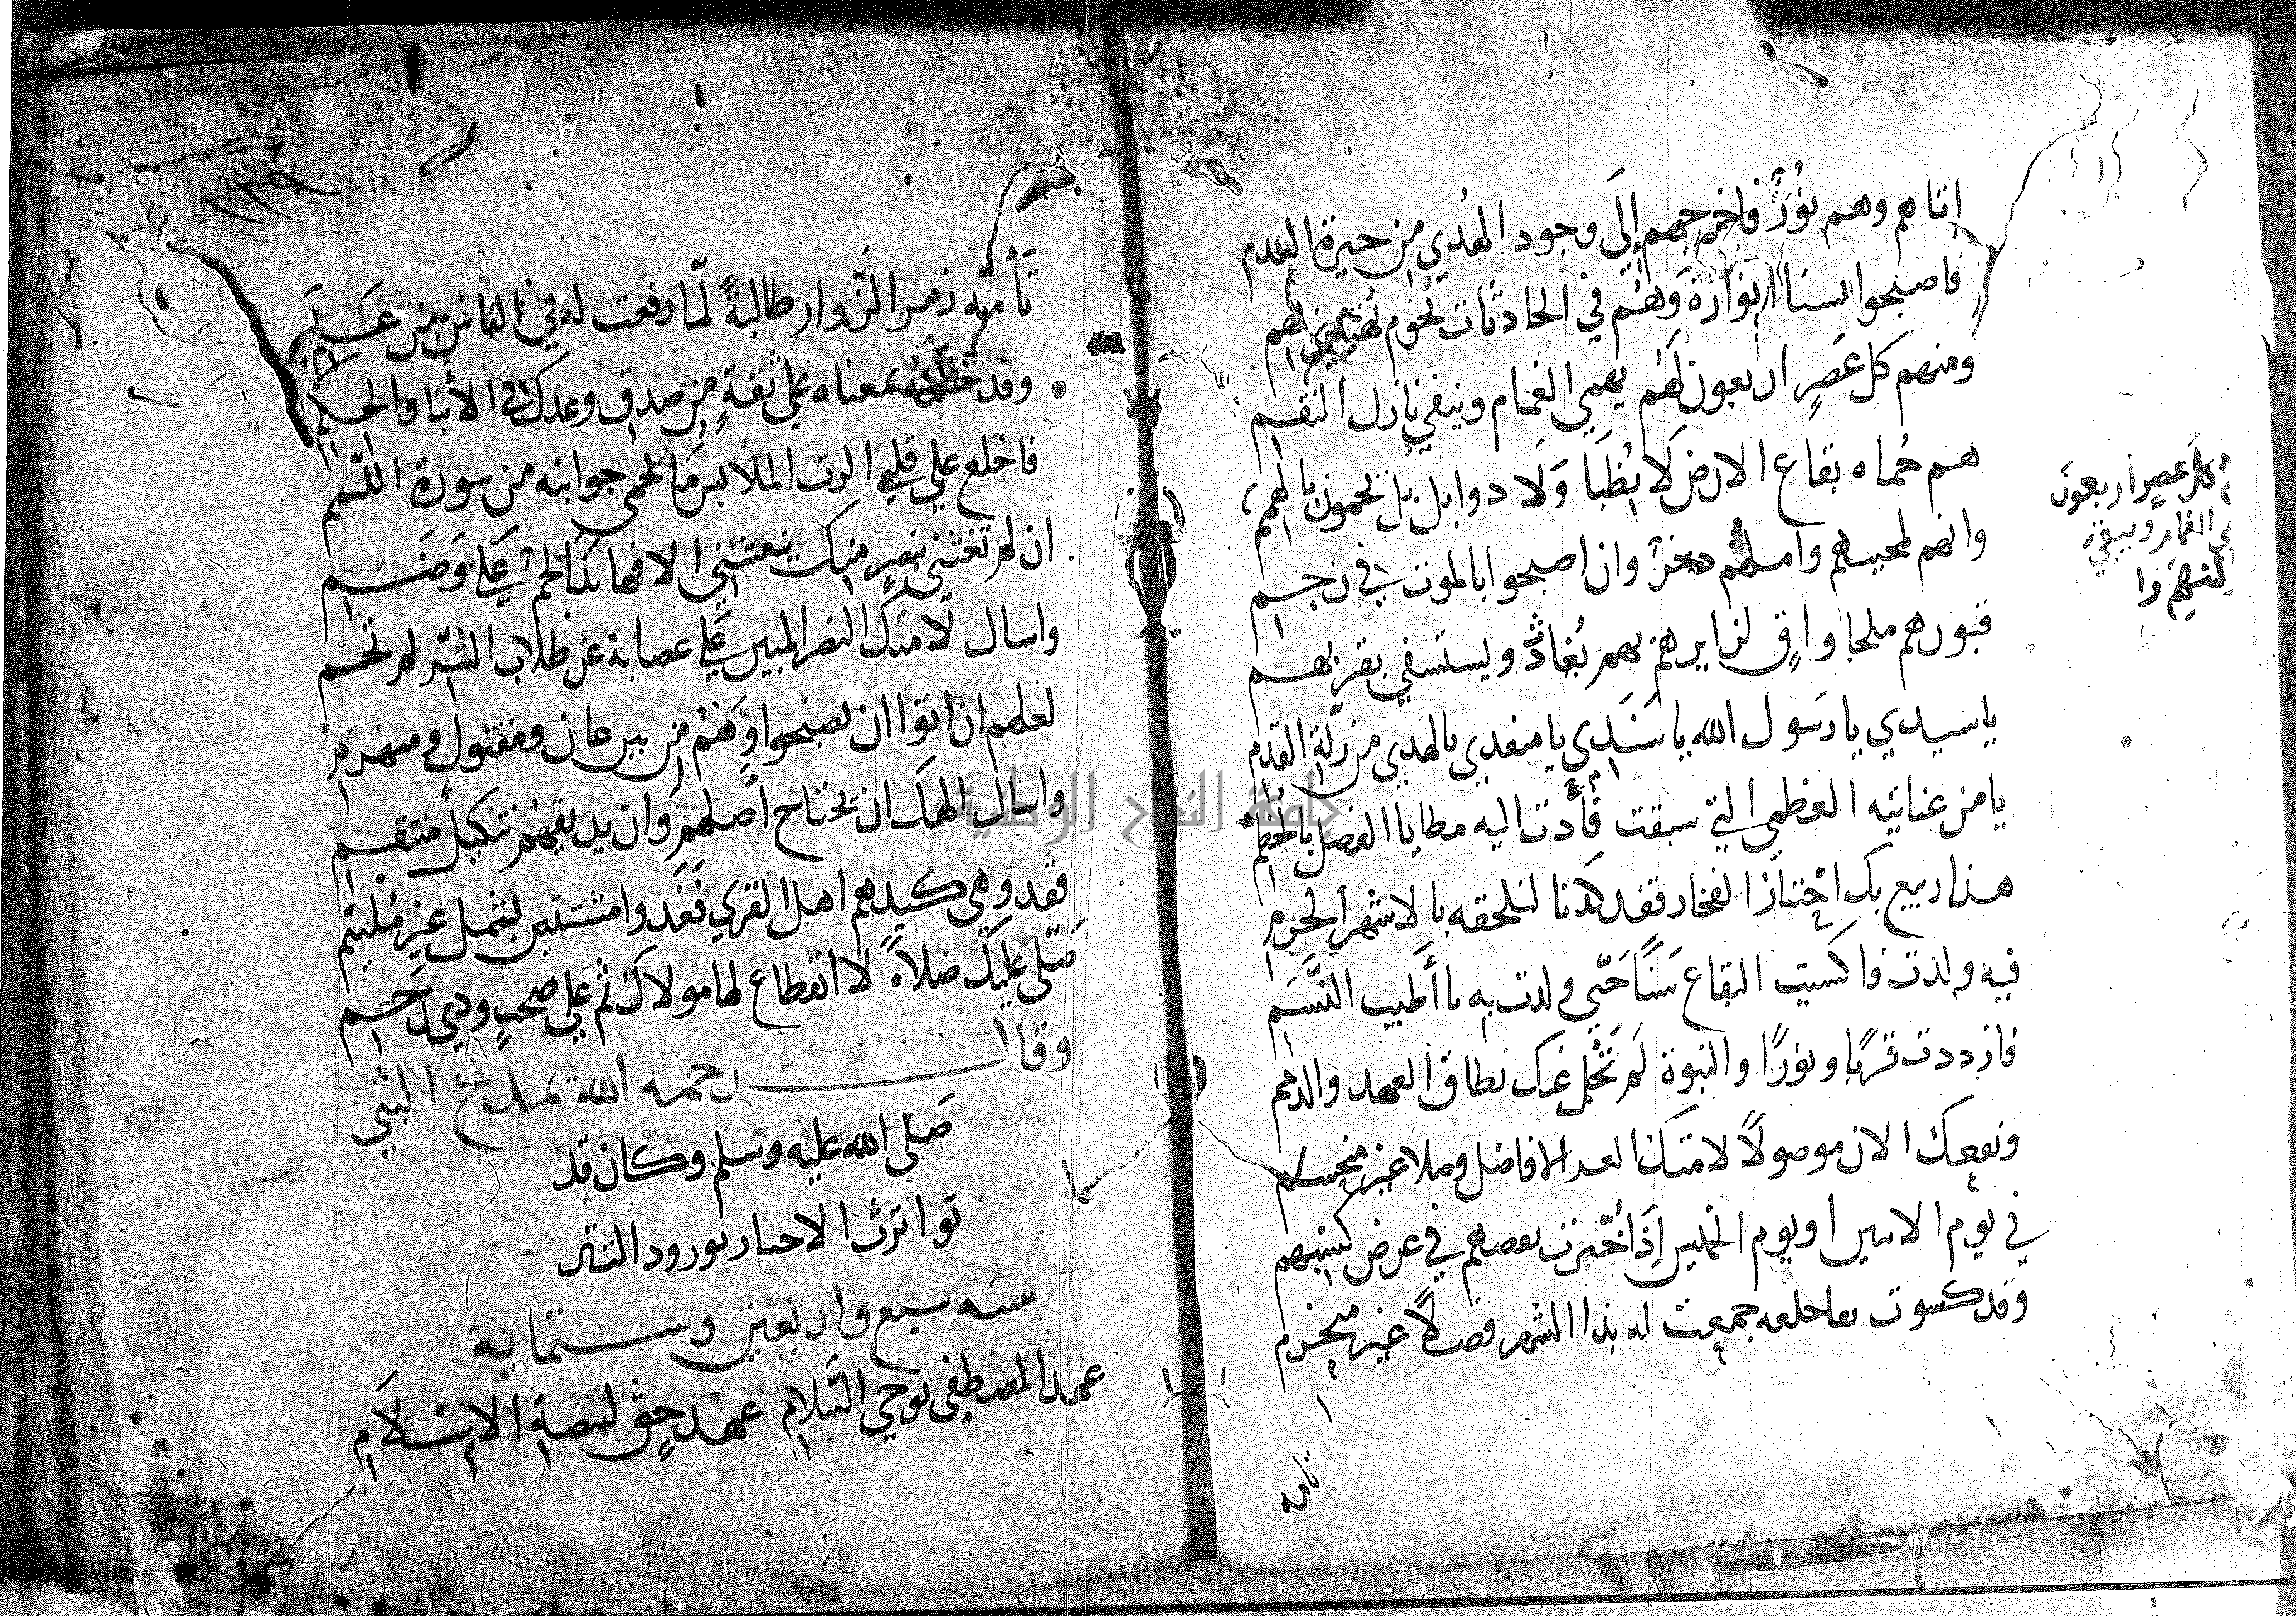 اتاهم وهم بُورٌ فاخرجهم إلى وجود الهدي من حيرة العدم
فاصبحوا لسنا انواره وَهُم في الحادثات نجوم يُهتدى بهم
ومنهم كل عَصرٍ اربعون لَهُم يهمي الغمام وينفي نازل النقم
هم حُماه بقاع الارض لَا بُظبَا وَلَا دوابل بل يحمون بالهمم
وانهم لمحبيهم وامـلهم دخرٌ وان اصبحوا بالموت في رجم
قبورهم ملجا واقٍ لزايرهم بهم يُغاث ويستسقي بقربهم
يا سيدي يا رسول الله يا سَنَدِي يا منقدي بالهدي من زلّة القدم
يا من عنايته العظمي التي سبقت قادت اليه مطايا الفضل بالخطم
هذا ربيع بك اجتاز الفخار فقد كدنا لنلحقه بالاشهر الحرم
فيه ولدت فاكسيت البقاع سَنًا حَتّى ولدت به يا أطيب النَّسَم
فازددت قربًا ونورًا والنبوة لَم تَحُلّ عنك نطاق العهد والذمم
ونفعك الان موصولًا لامتك العد الافاضل وصلا غير منحسم
في يوم الاثنين او يوم الخميس إذَا أُخبرت بعضهم في عرض كسبهم
وقد كسوت بها خلعه جمعت له بذا الشهر فضلًا غير منخرم
تامه
كل عصرٍ اربعون
ى الغمام وينفي
١٣٩
تأمّه زمر الزّوار طالبةً لمّا رفعت له في الناس من عَلَم
وقد معناه على ثقةٍ من صدق وعدك في الأنبا والحكم
فاخلع علي قلبه الرث الملابس مَا يحمى جوانبه من سورة اللّمم
ان لم تغثني بنصرٍ منك ينعشني الا فها انا كالحم على وَضَم
واسال لامتك النصر المبين على عصابة عن طلاب الشّر لم تخم
لعلهم ان اتوا ان يصبحوا وَهُم من بين عان ومقتول ومنهزم
واسال الهك ان يجتاح أصلهم وان يديقهم تنكيل منتقم
فقد وهى كيدهم اهل القري فَغَدوا مشتتين بشمل غير مُلتئم
صَلّى عليك صلاةً لا انقطاع لها مولاك ثم على صحبٍ وذي رَحِم
وقال رحمه الله يمدح النبي
صَلى الله عليه وسلم وكان قد
تواترت الاخبار بورود التتر
سنه سبع واربعين وستمايه
عهد المصطفى بوحي السَّلام عهد حقٍ لبيضة الإسْلَام